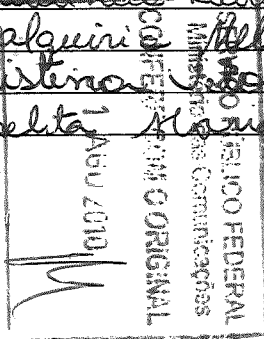 alquiria Mel
istina
elita Mari
PÚBLICO FEDERAL
Ministério das Comunicações
CONFERE COM O ORIGINAL
1 AGO 2010